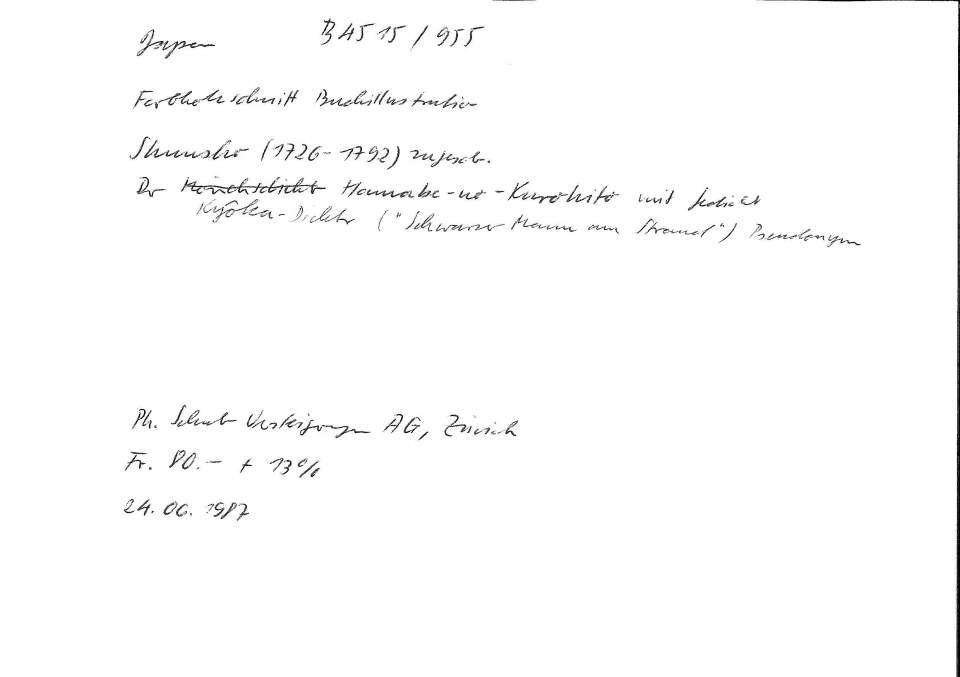 Japan B 45 15 / 955
Farbholzschnitt Buchillustration
Shunsho (1726-1792) zugesch.
Der Hamabe-no-Kurohito mit Gedicht
Kyôka-Dichter ("Schwarzer Mann am Strand") Pseudonym
Ph. Schub Versteigerungen AG, Zürich
Fr. 80.- + 13%
24.06.1987